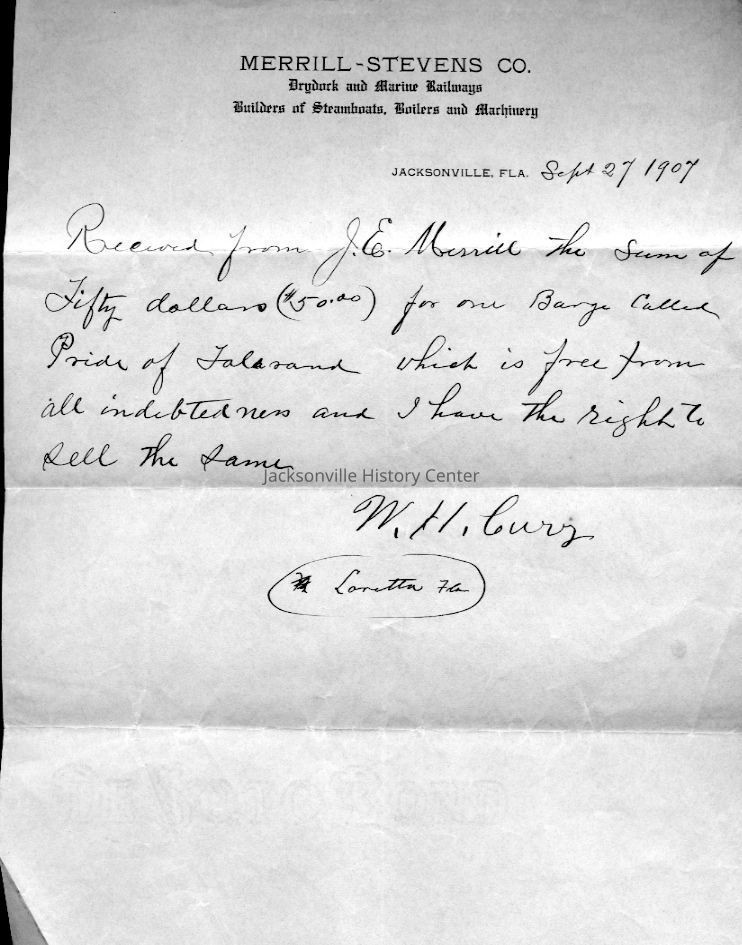 MERRILL-STEVENS CO.
Drydock and Marine Railways
Builders of Steamboats, Boilers and Machinery
JACKSONVILLE, FLA. Sept 27 1907
Received from J.E. Merrill the sum of
Fifty dollars ($50.00) for one Barge Called
Pride of which is free from
all indebtedness and I have the right to
sell the same
Jacksonville History Center
W. H.
Loretta Fla